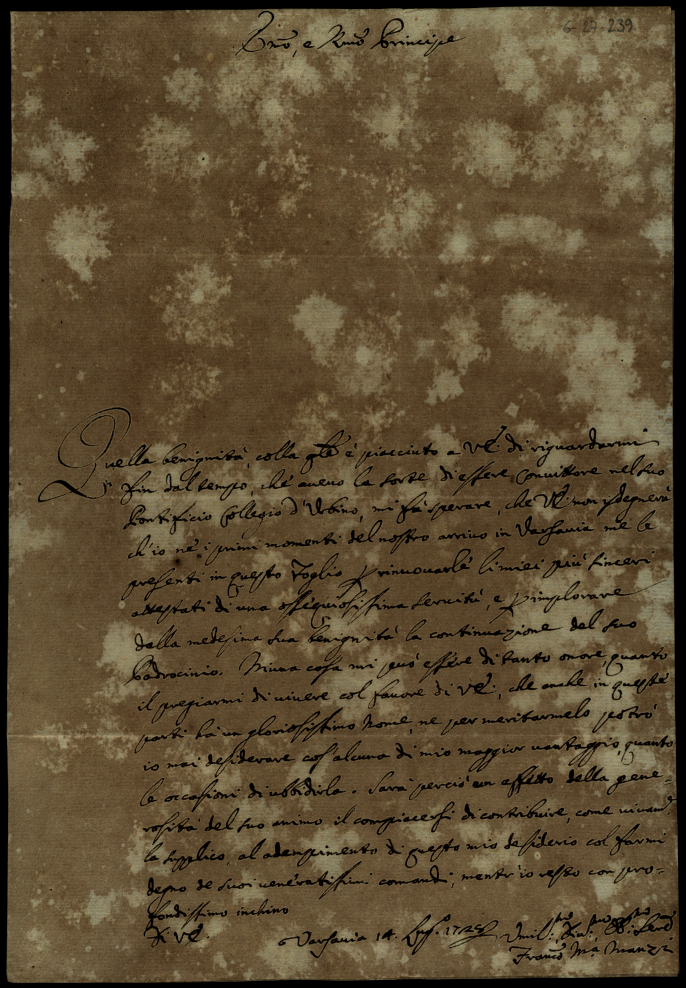 6-27-239
Emo, e Rmo Principe
Quella benignità, colla qle è piacciuto a VE: di riguardarmi
fin dal tempo, ch'ebbi la sorte di essere Convittore nel suo
Pontificio Collegio d'Urbino, mi fà sperare, che VE: non isdegnerà
ch'io ne' i primi momenti del nostro arrivo in Varsavia me le
presenti in questo foglio p rinnovarle li miei più sinceri
attestati di una ossequiosissima servitù, e p implorare
dalla medesima sua benignità la continuazione del suo
Padrocinio. Niuna cosa mi può essere di tanto onore, quanto
il pregiarmi di vivere col favore di VE:, che anche in queste
parti hà un gloriosissimo Nome, ne per meritarmelo potrò
io mai desiderare cos'alcuna di mio maggior vantaggio, quanto
le occasioni di ubbidirla. Sarà perciò un effetto della gene-
rosità del suo animo il compiacersi di contribuire, come
la supplico, al adempimento di questo mio desiderio col farmi
degno de suoi veneratissimi comandi, mentr'io resto con pro-
fondissimo inchino
Di VE:
Varsavia 14. Lug.o
Umil:mo Franco Ma Manzi